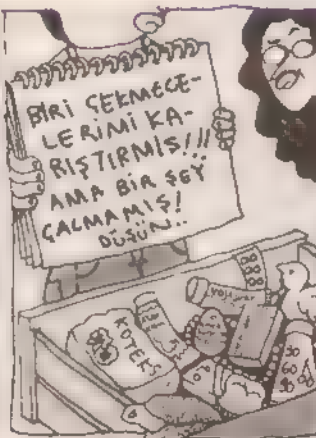 BİRİ ÇEKMECE-
LERİMİ KA-
RIŞTIRMIŞ!!!
AMA BİR ŞEY
ÇALMAMIŞ!
DÜŞÜN..
KOTEKS